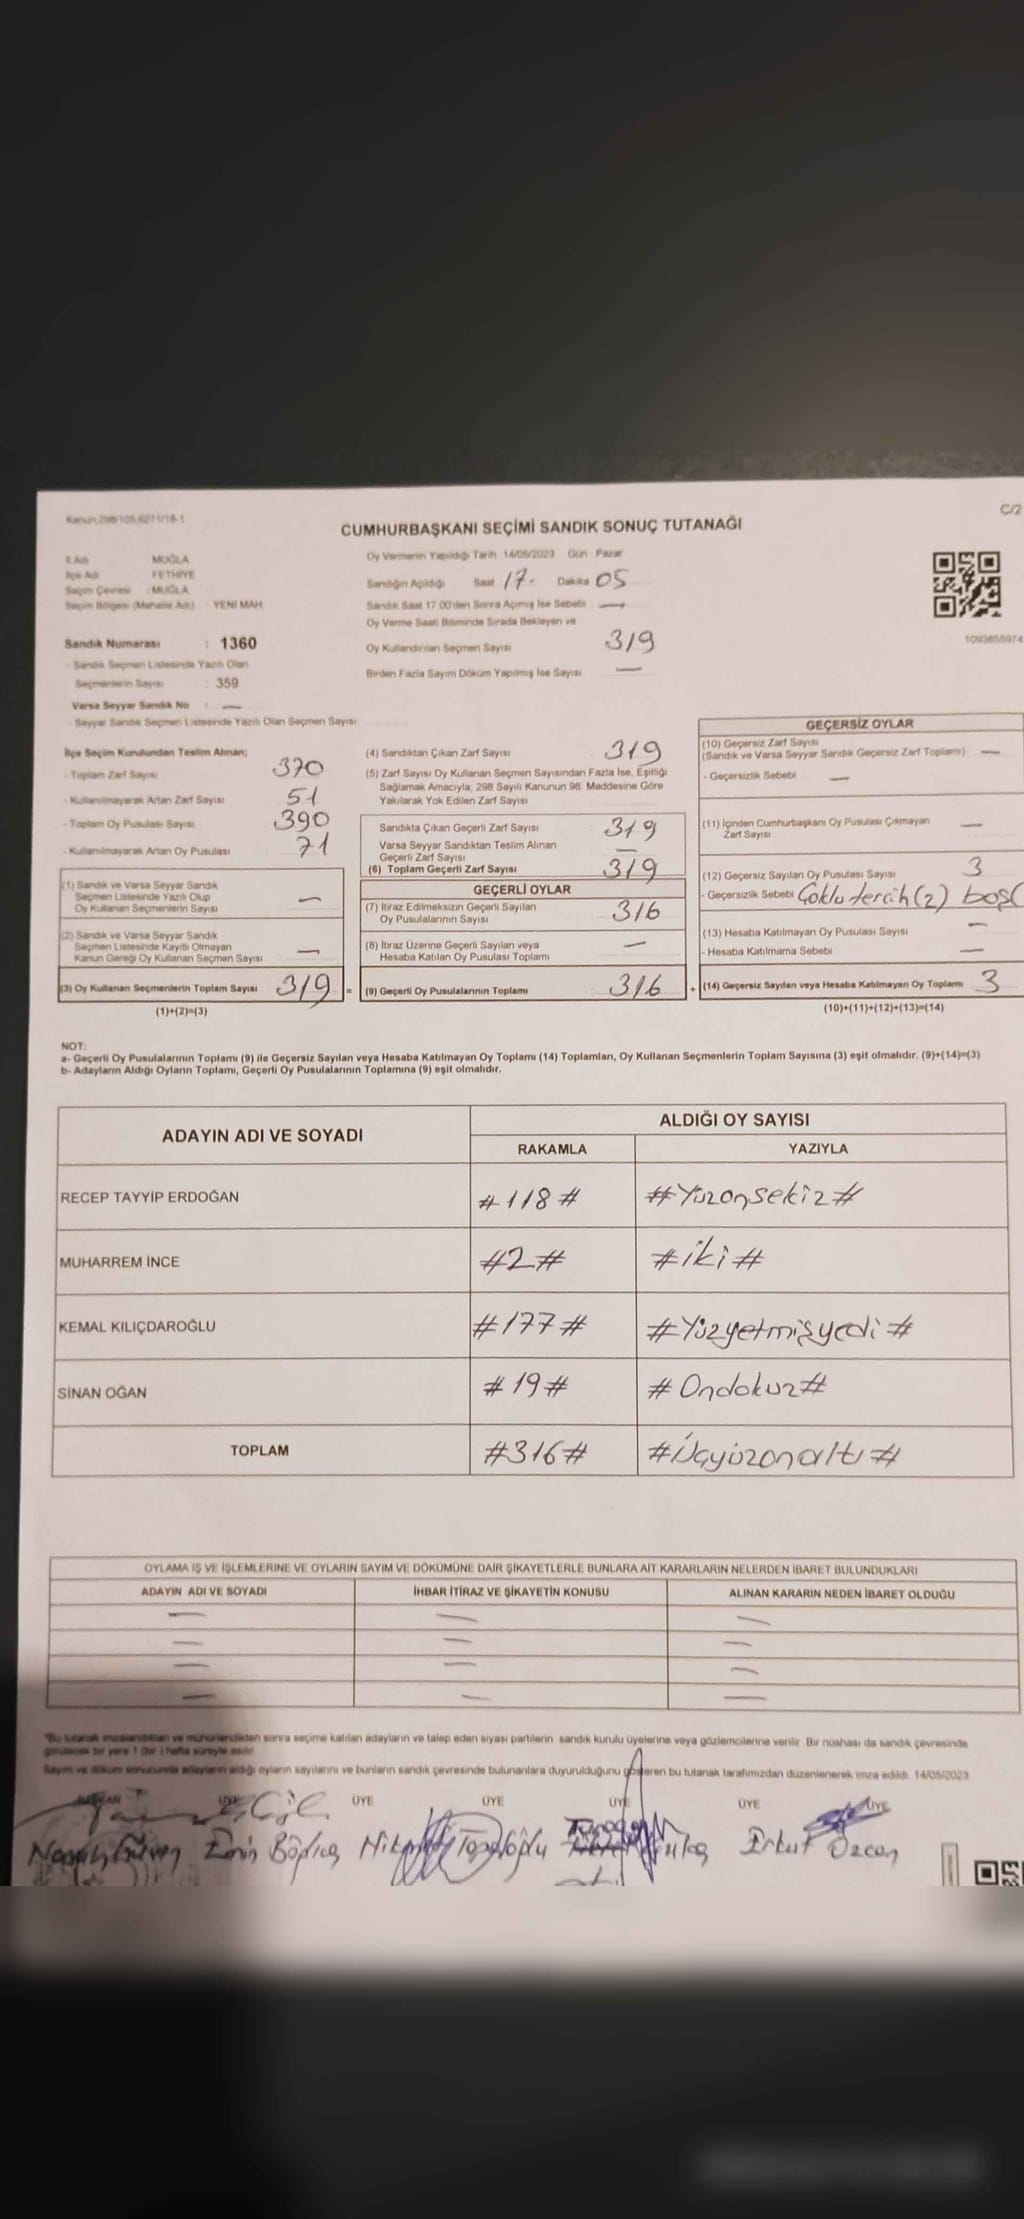 Kanun:298/105,6271/18-1
C/2
CUMHURBAŞKANI SEÇİMİ SANDIK SONUÇ TUTANAĞI
İl Adı MUĞLA
İlçe Adı FETHİYE
Seçim Çevresi : MUĞLA
Seçim Bölgesi (Mahalle Adı) YENİ MAH
Sandık Numarası : 1360
- Sandık Seçmen Listesinde Yazılı Olan
Seçmenlerin Sayısı : 359
Varsa Seyyar Sandık No : —
- Seyyar Sandık Seçmen Listesinde Yazılı Olan Seçmen Sayısı
Oy Vermenin Yapıldığı Tarih : 14/05/2023 Gün : Pazar
Sandığın Açıldığı Saat 17 Dakika 05
Sandık Saat 17.00'den Sonra Açımış İse Sebebi —
Oy Verme Saati Bitiminde Sırada Bekleyen ve
Oy Kullandırılan Seçmen Sayısı 319
Birden Fazla Sayım Döküm Yapılmış İse Sayısı —
1093655974
İlçe Seçim Kurulundan Teslim Alınan;
- Toplam Zarf Sayısı 370
- Kullanılmayarak Artan Zarf Sayısı 51
- Toplam Oy Pusulası Sayısı 390
- Kullanılmayarak Artan Oy Pusulası 71
(1) Sandık ve Varsa Seyyar Sandık
Seçmen Listesinde Yazılı Olup
Oy Kullanan Seçmenlerin Sayısı —
(2) Sandık ve Varsa Seyyar Sandık
Seçmen Listesinde Kayıtlı Olmayan
Kanun Gereği Oy Kullanan Seçmen Sayısı —
(3) Oy Kullanan Seçmenlerin Toplam Sayısı 319 =
(1)+(2)=(3)
(4) Sandıktan Çıkan Zarf Sayısı 319
(5) Zarf Sayısı Oy Kullanan Seçmen Sayısından Fazla İse, Eşitliği
Sağlamak Amacıyla; 298 Sayılı Kanunun 98. Maddesine Göre
Yakılarak Yok Edilen Zarf Sayısı —
Sandıkta Çıkan Geçerli Zarf Sayısı 319
Varsa Seyyar Sandıktan Teslim Alınan
Geçerli Zarf Sayısı —
(6) Toplam Geçerli Zarf Sayısı 319
GEÇERLİ OYLAR
(7) İtiraz Edilmeksizin Geçerli Sayılan
Oy Pusulalarının Sayısı 316
(8) İtiraz Üzerine Geçerli Sayılan veya
Hesaba Katılan Oy Pusulası Toplamı —
(9) Geçerli Oy Pusulalarının Toplamı 316 +
GEÇERSİZ OYLAR
(10) Geçersiz Zarf Sayısı
(Sandık ve Varsa Seyyar Sandık Geçersiz Zarf Toplamı) —
- Geçersizlik Sebebi —
(11) İçinden Cumhurbaşkanı Oy Pusulası Çıkmayan
Zarf Sayısı —
(12) Geçersiz Sayılan Oy Pusulası Sayısı 3
- Geçersizlik Sebebi Çoklu tercih (2) boş(
(13) Hesaba Katılmayan Oy Pusulası Sayısı —
- Hesaba Katılmama Sebebi —
(14) Geçersiz Sayılan veya Hesaba Katılmayan Oy Toplamı 3
(10)+(11)+(12)+(13)=(14)
NOT:
a- Geçerli Oy Pusulalarının Toplamı (9) ile Geçersiz Sayılan veya Hesaba Katılmayan Oy Toplamı (14) Toplamları, Oy Kullanan Seçmenlerin Toplam Sayısına (3) eşit olmalıdır. (9)+(14)=(3)
b- Adayların Aldığı Oyların Toplamı, Geçerli Oy Pusulalarının Toplamına (9) eşit olmalıdır.
ADAYIN ADI VE SOYADI
ALDIĞI OY SAYISI
RAKAMLA YAZIYLA
RECEP TAYYİP ERDOĞAN #118# #Yüzonsekiz#
MUHARREM İNCE #2# #iki#
KEMAL KILIÇDAROĞLU #177# #Yüzyetmişyedi#
SİNAN OĞAN #19# #Ondokuz#
TOPLAM #316# #Üçyüzonaltı#
OYLAMA İŞ VE İŞLEMLERİNE VE OYLARIN SAYIM VE DÖKÜMÜNE DAİR ŞİKAYETLERLE BUNLARA AİT KARARLARIN NELERDEN İBARET BULUNDUKLARI
ADAYIN ADI VE SOYADI İHBAR İTİRAZ VE ŞİKAYETİN KONUSU ALINAN KARARIN NEDEN İBARET OLDUĞU
— — —
— — —
— — —
— — —
*Bu tutanak imzalandıktan ve mühürlendikten sonra seçime katılan adayların ve talep eden siyasi partilerin sandık kurulu üyelerine veya gözlemcilerine verilir. Bir nüshası da sandık çevresinde
görülecek bir yere 1 (bir ) hafta süreyle asılır.
Sayım ve döküm sonucunda adayların aldığı oyların sayılarını ve bunların sandık çevresinde bulunanlara duyurulduğunu gösteren bu tutanak tarafımızdan düzenlenerek imza edildi. 14/05/2023
BAŞKAN ÜYE ÜYE ÜYE ÜYE ÜYE ÜYE
Emin Topaloğlu Erkut Özcan